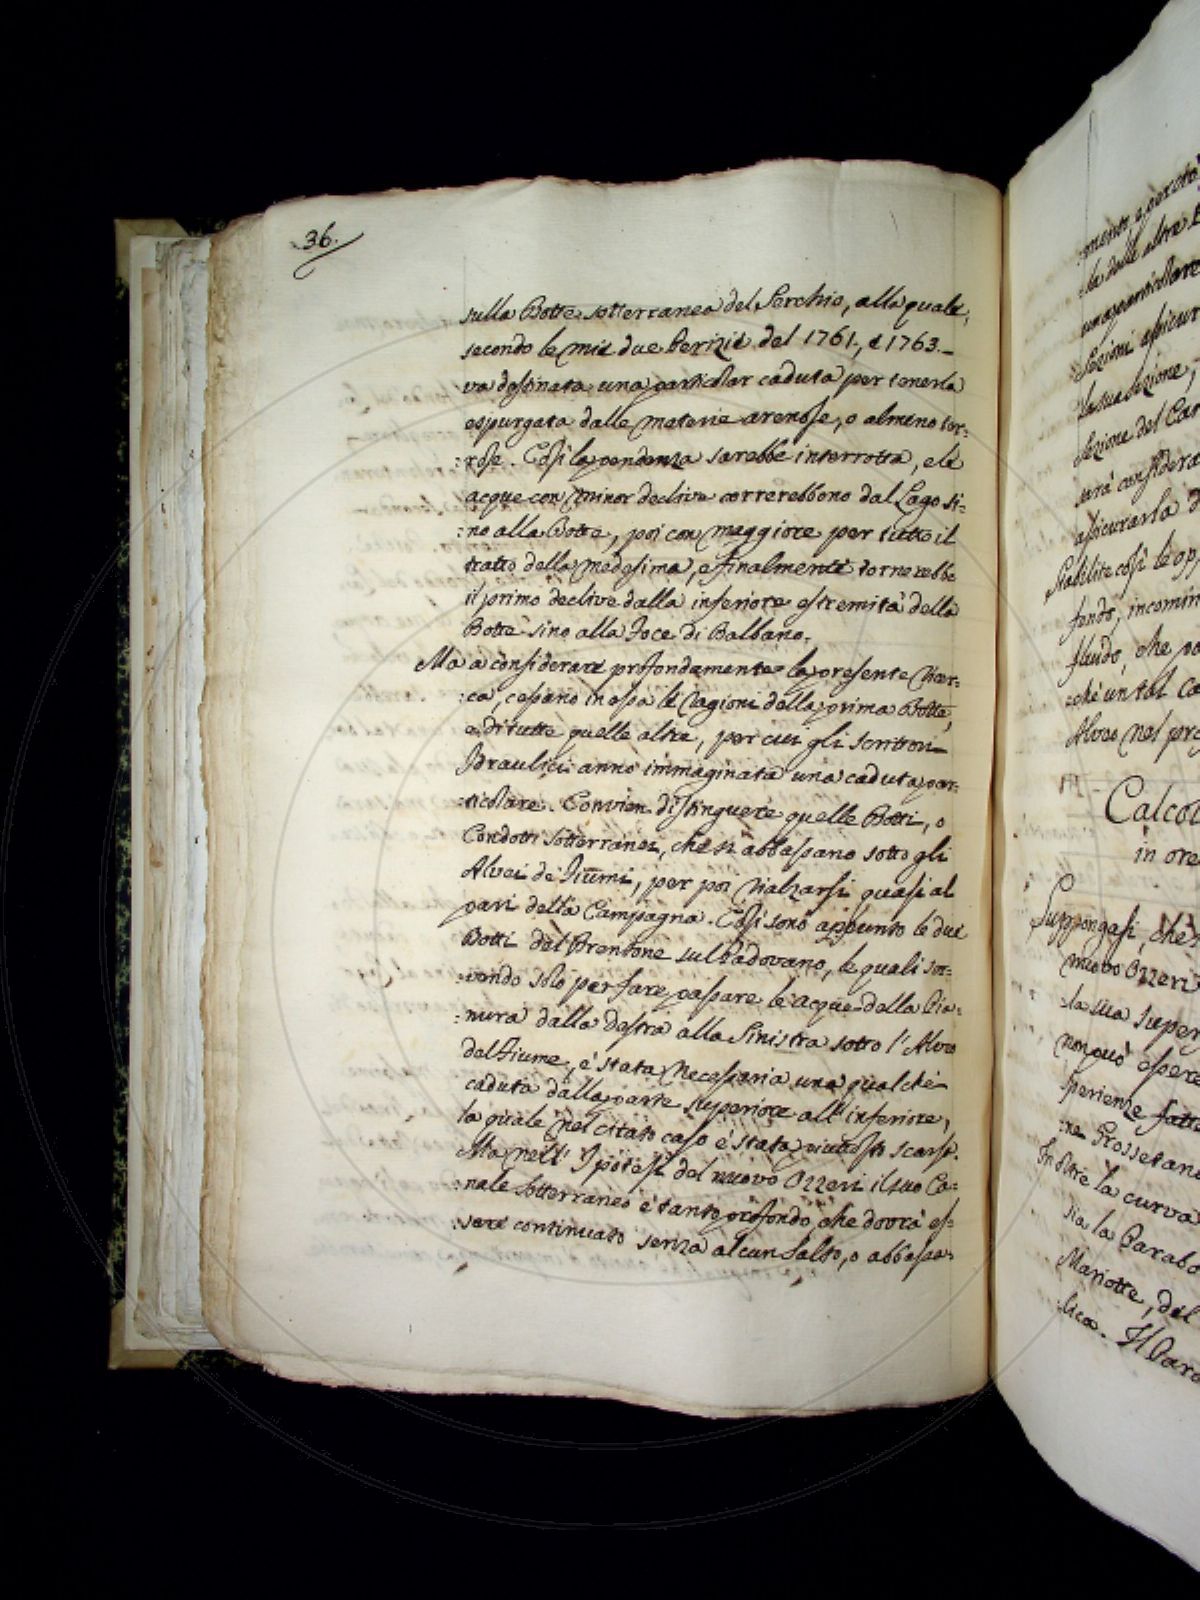 36.
sulla Botte sotterranea del Serchio, alla quale,
secondo le mie due Perizie del 1761., e 1763.
va destinata una particolar caduta per tenerla
espurgata dalle materie arenose, o almeno ter:
:rose. Così la pendenza sarebbe interrotta, e le
acque con minor declive correrebbono dal Lago si:
:no alla Botte, poi con maggiore per tutto il
tratto della medesima, e finalmente tornerebbe
il primo declive dalla inferiore estremità della
Botte sino alla Foce di Balbano.
Ma a considerare profondamente la presente Ricer:
:ca, cessano in essa le ragioni della prima Botte,
e di tutte quelle altre, per cui gli scrittori
Idraulici anno immaginata una caduta par:
:ticolare. Convien distinguere quelle Botti, o
Condotti sotterranei, che si abbassano sotto gli
Alvei de' Fiumi, per poi rialzarsi quasi al
pari della Campagna. Così sono appunto le due
Botti del Brentone sul Padovano, le quali ser:
:vendo solo per fare passare le acque della Pia:
:nura dalla destra alla Sinistra sotto l'Alveo
del Fiume, è stata necessaria una qualche
caduta dalla parte superiore all'inferiore,
la quale nel citato caso è stata piuttosto scarsa.
Ma nell'Ipotesi del nuovo Ozzeri il suo Ca:
:nale sotterraneo è tanto profondo, che dovrà es:
:sere continuato senza alcun Salto, o abbassa:
mento, e perciò
la dalle altre
una particolare
Sezioni assicur
la sua sezione,
sezione del Can
sarà considera
assicurarla d
Stabilite così le op
fondo, incomin
fluido, che po
ché un tal ca
Alveo nel pro
Calcol
in ore
Suppongasi, che
nuovo Ozzeri
la sua super
non può essere
sperienze fatte
:ne Grossetane
Inoltre la curva
sia la Parabo
Mariotte, del
:lica. Il Para